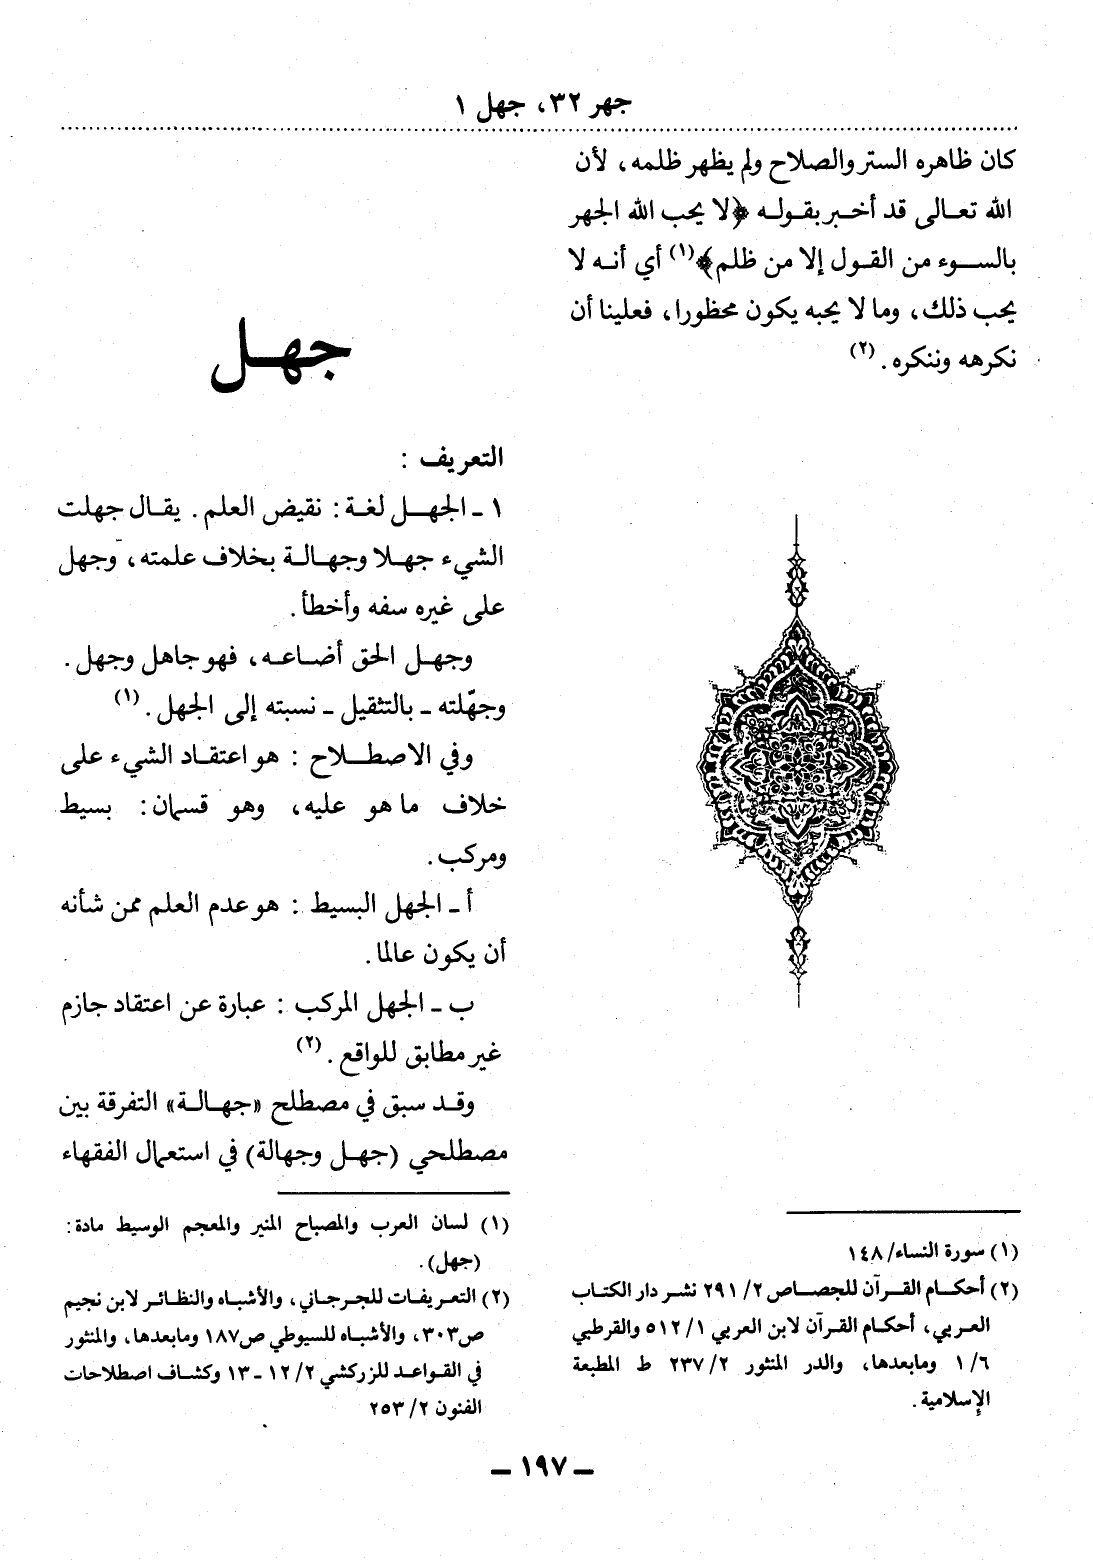 جهر ٣٢، جهل ١
كان ظاهره الستر والصلاح ولم يظهر ظلمه، لأن
الله تعالى قد أخبر بقوله ﴿لا يحب الله الجهر
بالسوء من القول إلا من ظلم﴾(١) أي أنه لا
يحب ذلك، وما لا يحبه يكون محظورا، فعلينا أن
نكرهه وننكره. (٢)
(١) سورة النساء/ ١٤٨
(٢) أحكام القرآن للجصاص ٢/ ٢٩١ نشر دار الكتاب
العربي، أحكام القرآن لابن العربي ١/ ٥١٢ والقرطبي
٦/ ١ ومابعدها، والدر المنثور ٢/ ٢٣٧ ط المطبعة
الإسلامية.
جهل
التعريف :
١ ـ الجهل لغة: نقيض العلم. يقال جهلت
الشيء جهلا وجهالة بخلاف علمته، وجهل
على غيره سفه وأخطأ.
وجهل الحق أضاعه، فهو جاهل وجهل.
وجهّلته ـ بالتثقيل ـ نسبته إلى الجهل. (١)
وفي الاصطلاح : هو اعتقاد الشيء على
خلاف ما هو عليه، وهو قسمان: بسيط
ومركب.
أ ـ الجهل البسيط : هو عدم العلم ممن شأنه
أن يكون عالما.
ب ـ الجهل المركب : عبارة عن اعتقاد جازم
غير مطابق للواقع. (٢)
وقد سبق في مصطلح «جهالة» التفرقة بين
مصطلحي (جهل وجهالة) في استعمال الفقهاء
(١) لسان العرب والمصباح المنير والمعجم الوسيط مادة:
(جهل).
(٢) التعريفات للجرجاني، والأشباه والنظائر لابن نجيم
ص٣٠٣، والأشباه للسيوطي ص١٨٧ ومابعدها، والمنثور
في القواعد للزركشي ٢/ ١٢ ـ ١٣ وكشاف اصطلاحات
الفنون ٢/ ٢٥٣
ـ ١٩٧ ـ